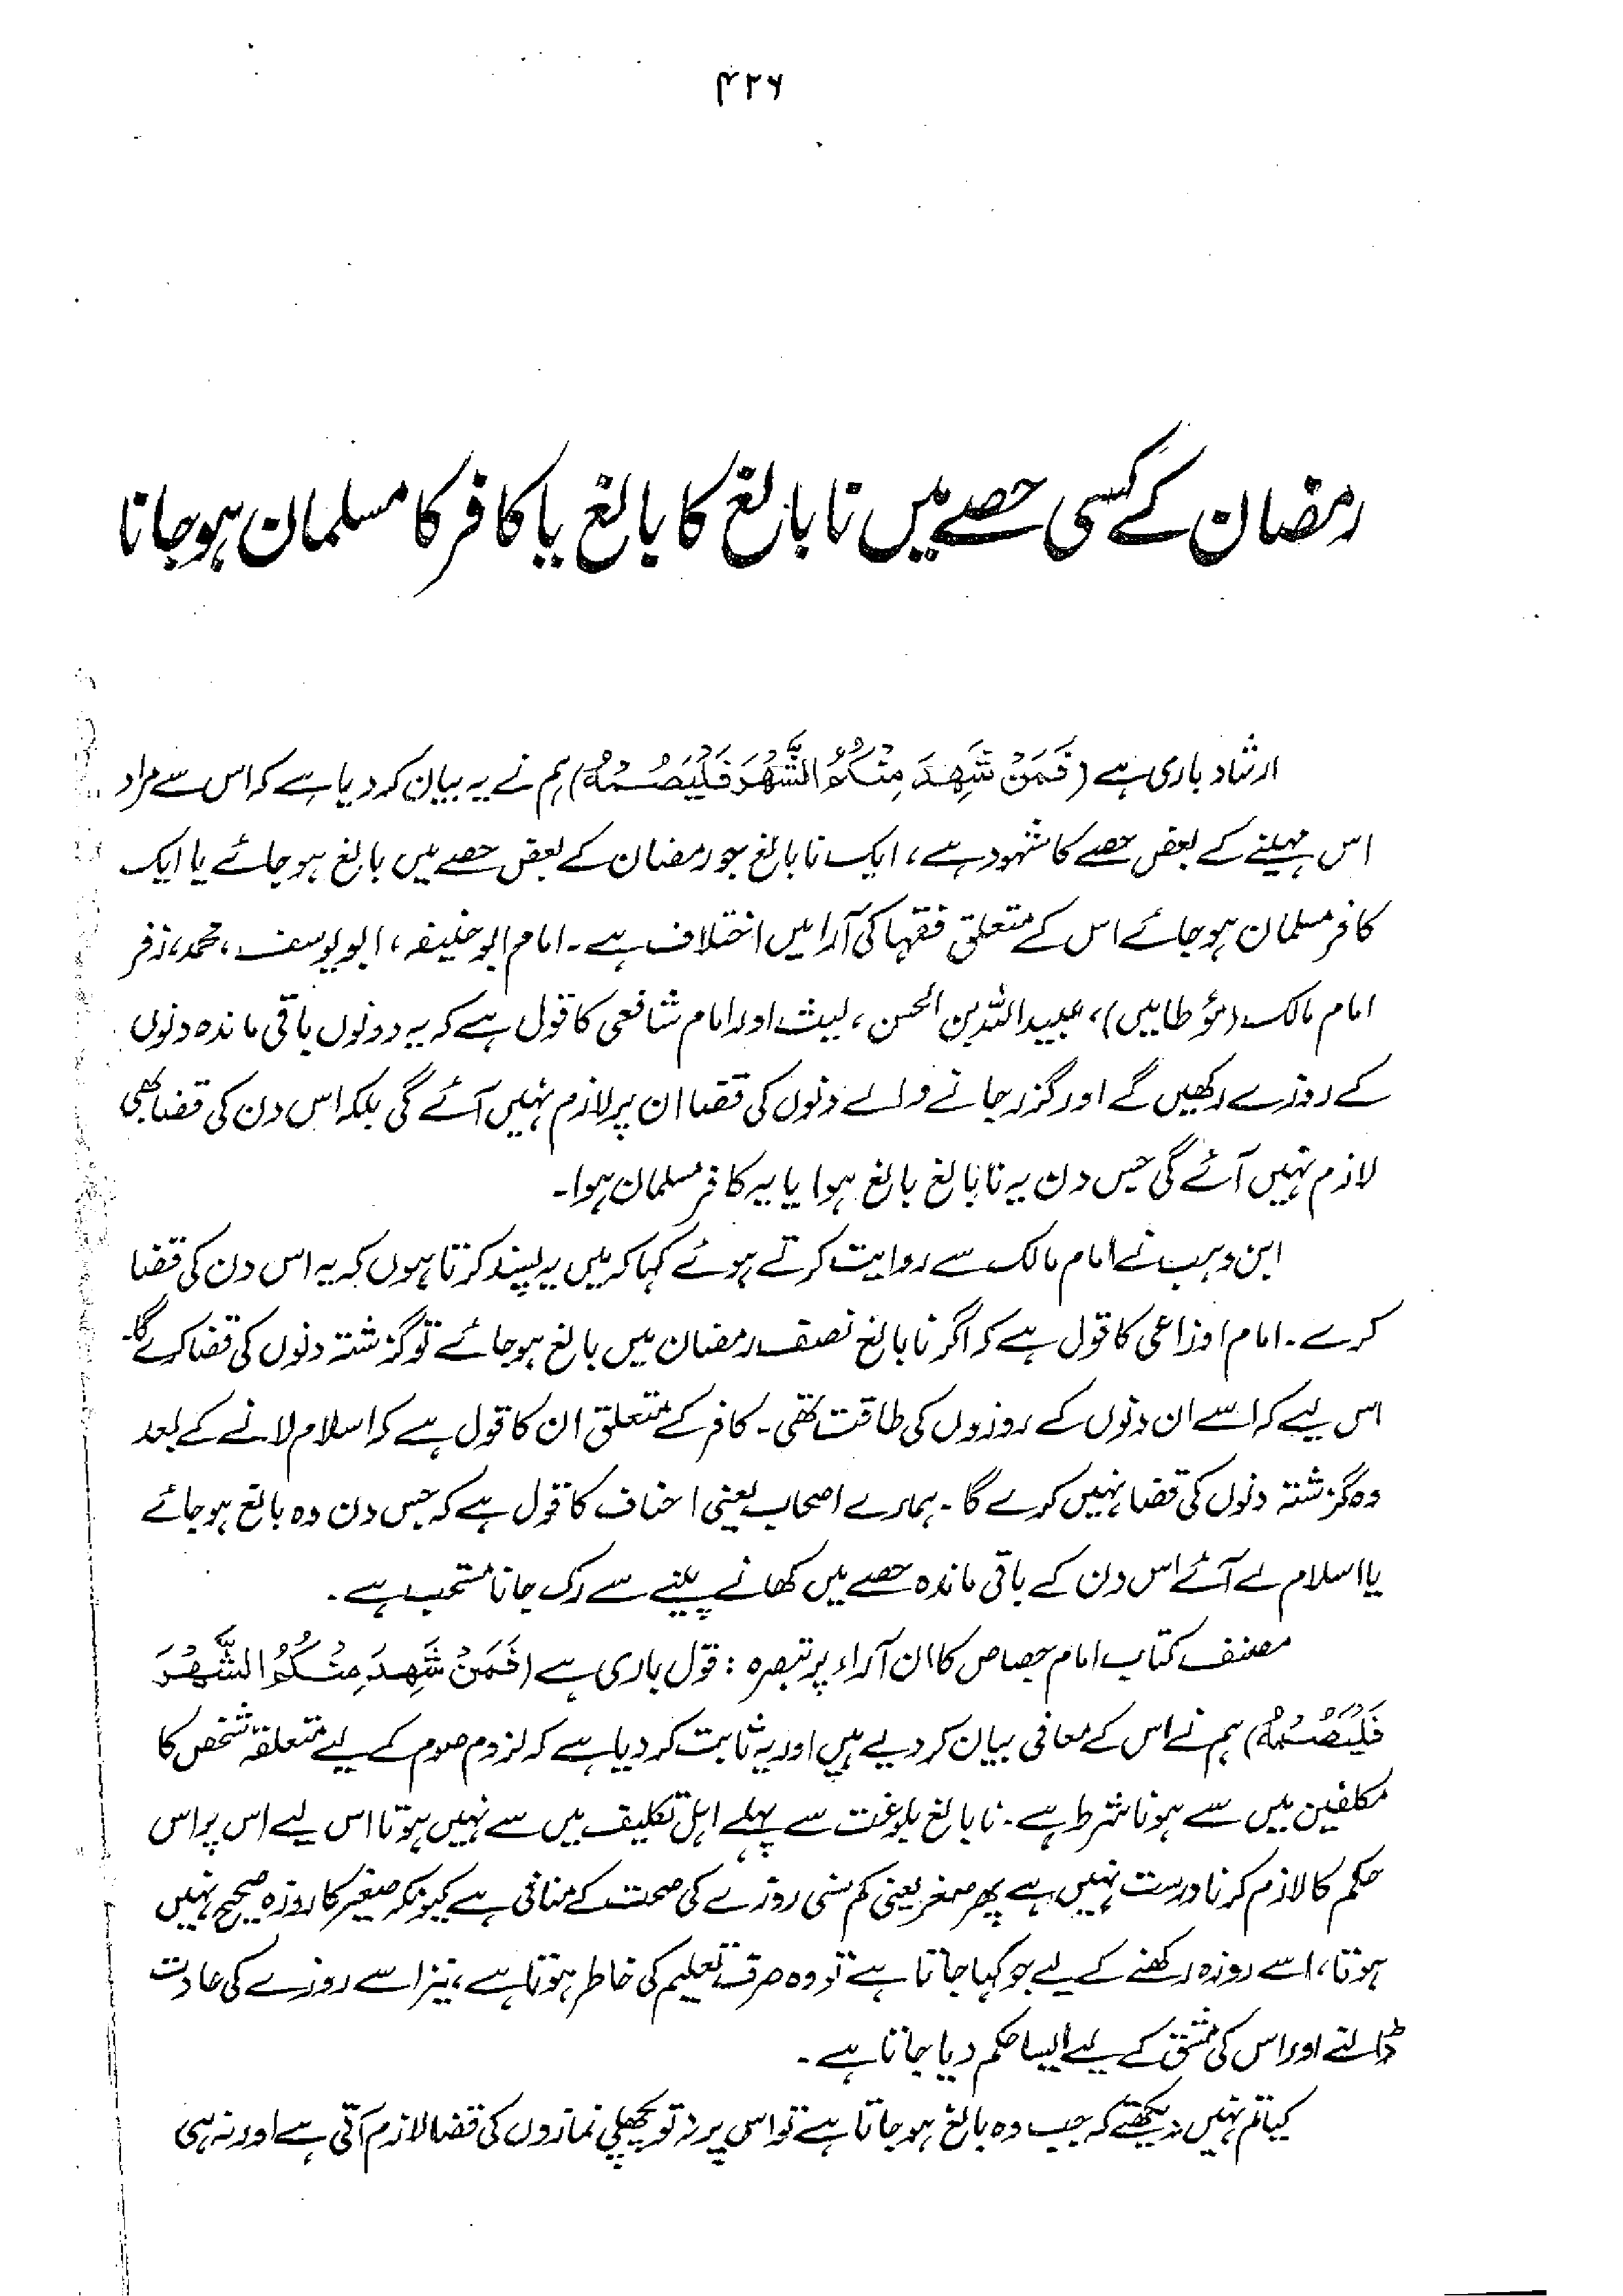 ۴۲۶
رمضان کے کسی حصے میں نابالغ کا بالغ یا کافر کا مسلمان ہو جانا
ارشاد باری ہے (فَمَنْ شَهِدَ مِنْكُمُ الشَّهْرَ فَلْيَصُمْهُ) ہم نے یہ بیان کر دیا ہے کہ اس سے مراد
اس مہینے کے بعض حصے کا شہود ہے، ایک نابالغ جو رمضان کے بعض حصے میں بالغ ہو جائے یا ایک
کافر مسلمان ہو جائے اس کے متعلق فقہا کی آرا میں اختلاف ہے۔ امام ابوحنیفہ، ابویوسف، محمد، زفر
امام مالک (مؤطا میں)، عبید اللہ بن الحسن، لیث اور امام شافعی کا قول ہے کہ یہ دونوں باقی ماندہ دنوں
کے روزے رکھیں گے اور گزر جانے والے دنوں کی قضا ان پر لازم نہیں آئے گی بلکہ اس دن کی قضا بھی
لازم نہیں آئے گی جس دن یہ نابالغ بالغ ہوا یا یہ کافر مسلمان ہوا۔
ابن وہب نے امام مالک سے روایت کرتے ہوئے کہا کہ میں یہ پسند کرتا ہوں کہ یہ اس دن کی قضا
کرے۔ امام اوزاعی کا قول ہے کہ اگر نابالغ نصف رمضان میں بالغ ہو جائے تو گزشتہ دنوں کی قضا کرے گا۔
اس لیے کہ اسے ان دنوں کے روزوں کی طاقت تھی۔ کافر کے متعلق ان کا قول ہے کہ اسلام لانے کے بعد
وہ گزشتہ دنوں کی قضا نہیں کرے گا۔ ہمارے اصحاب یعنی احناف کا قول ہے کہ جس دن وہ بالغ ہو جائے
یا اسلام لے آئے اس دن کے باقی ماندہ حصے میں کھانے پینے سے رک جانا مستحب ہے۔
مصنف کتاب امام جصاص کا ان آراء پر تبصرہ : قول باری ہے (فَمَنْ شَهِدَ مِنْكُمُ الشَّهْرَ
فَلْيَصُمْهُ) ہم نے اس کے معافی بیان کر دیے ہیں اور یہ ثابت کر دیا ہے کہ لزوم صوم کے لیے متعلقہ شخص کا
مکلفین میں سے ہونا شرط ہے۔ نابالغ بلوغت سے پہلے اہل تکلیف میں سے نہیں ہوتا اس لیے اس پر اس
حکم کا لازم کرنا درست نہیں ہے پھر صغر یعنی کم سنی روزے کی صحت کے منافی ہے کیونکہ صغیر کا روزہ صحیح نہیں
ہوتا، اسے روزہ رکھنے کے لیے جو کہا جاتا ہے تو وہ صرف تعلیم کی خاطر ہوتا ہے، نیز اسے روزے کی عادت
ڈالنے اور اس کی مشق کے لیے ایسا حکم دیا جاتا ہے۔
کیا تم نہیں دیکھتے کہ جب وہ بالغ ہو جاتا ہے تو اس پر نہ تو پچھلی نمازوں کی قضا لازم آتی ہے اور نہ ہی